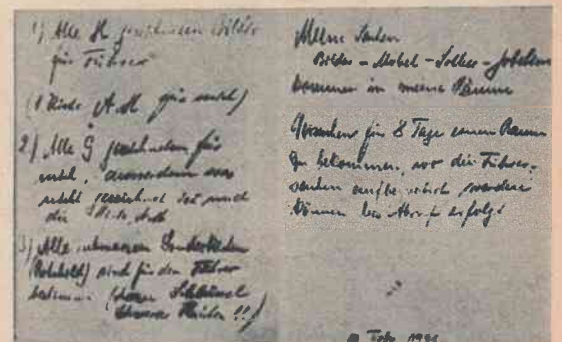 1) Alle H gezeichneten Bilder
für Führer
(1 Kiste A.H für mich)
2) Alle G gezeichneten für
mich, ausserdem was
nicht gezeichnet ist und
die
3) Alle schwarzen Sonderkisten
(Rotschild) sind für den Führer
bestimmt (
schwere Kisten !!)
Meine Sachen
Bilder - Möbel - Silber - Gobelins
kommen in meine Räume
Versuchen für 8 Tage einen Raum
zu bekommen, wo die Führer-
sachen aufbewahrt werden
können bis Abruf erfolgt